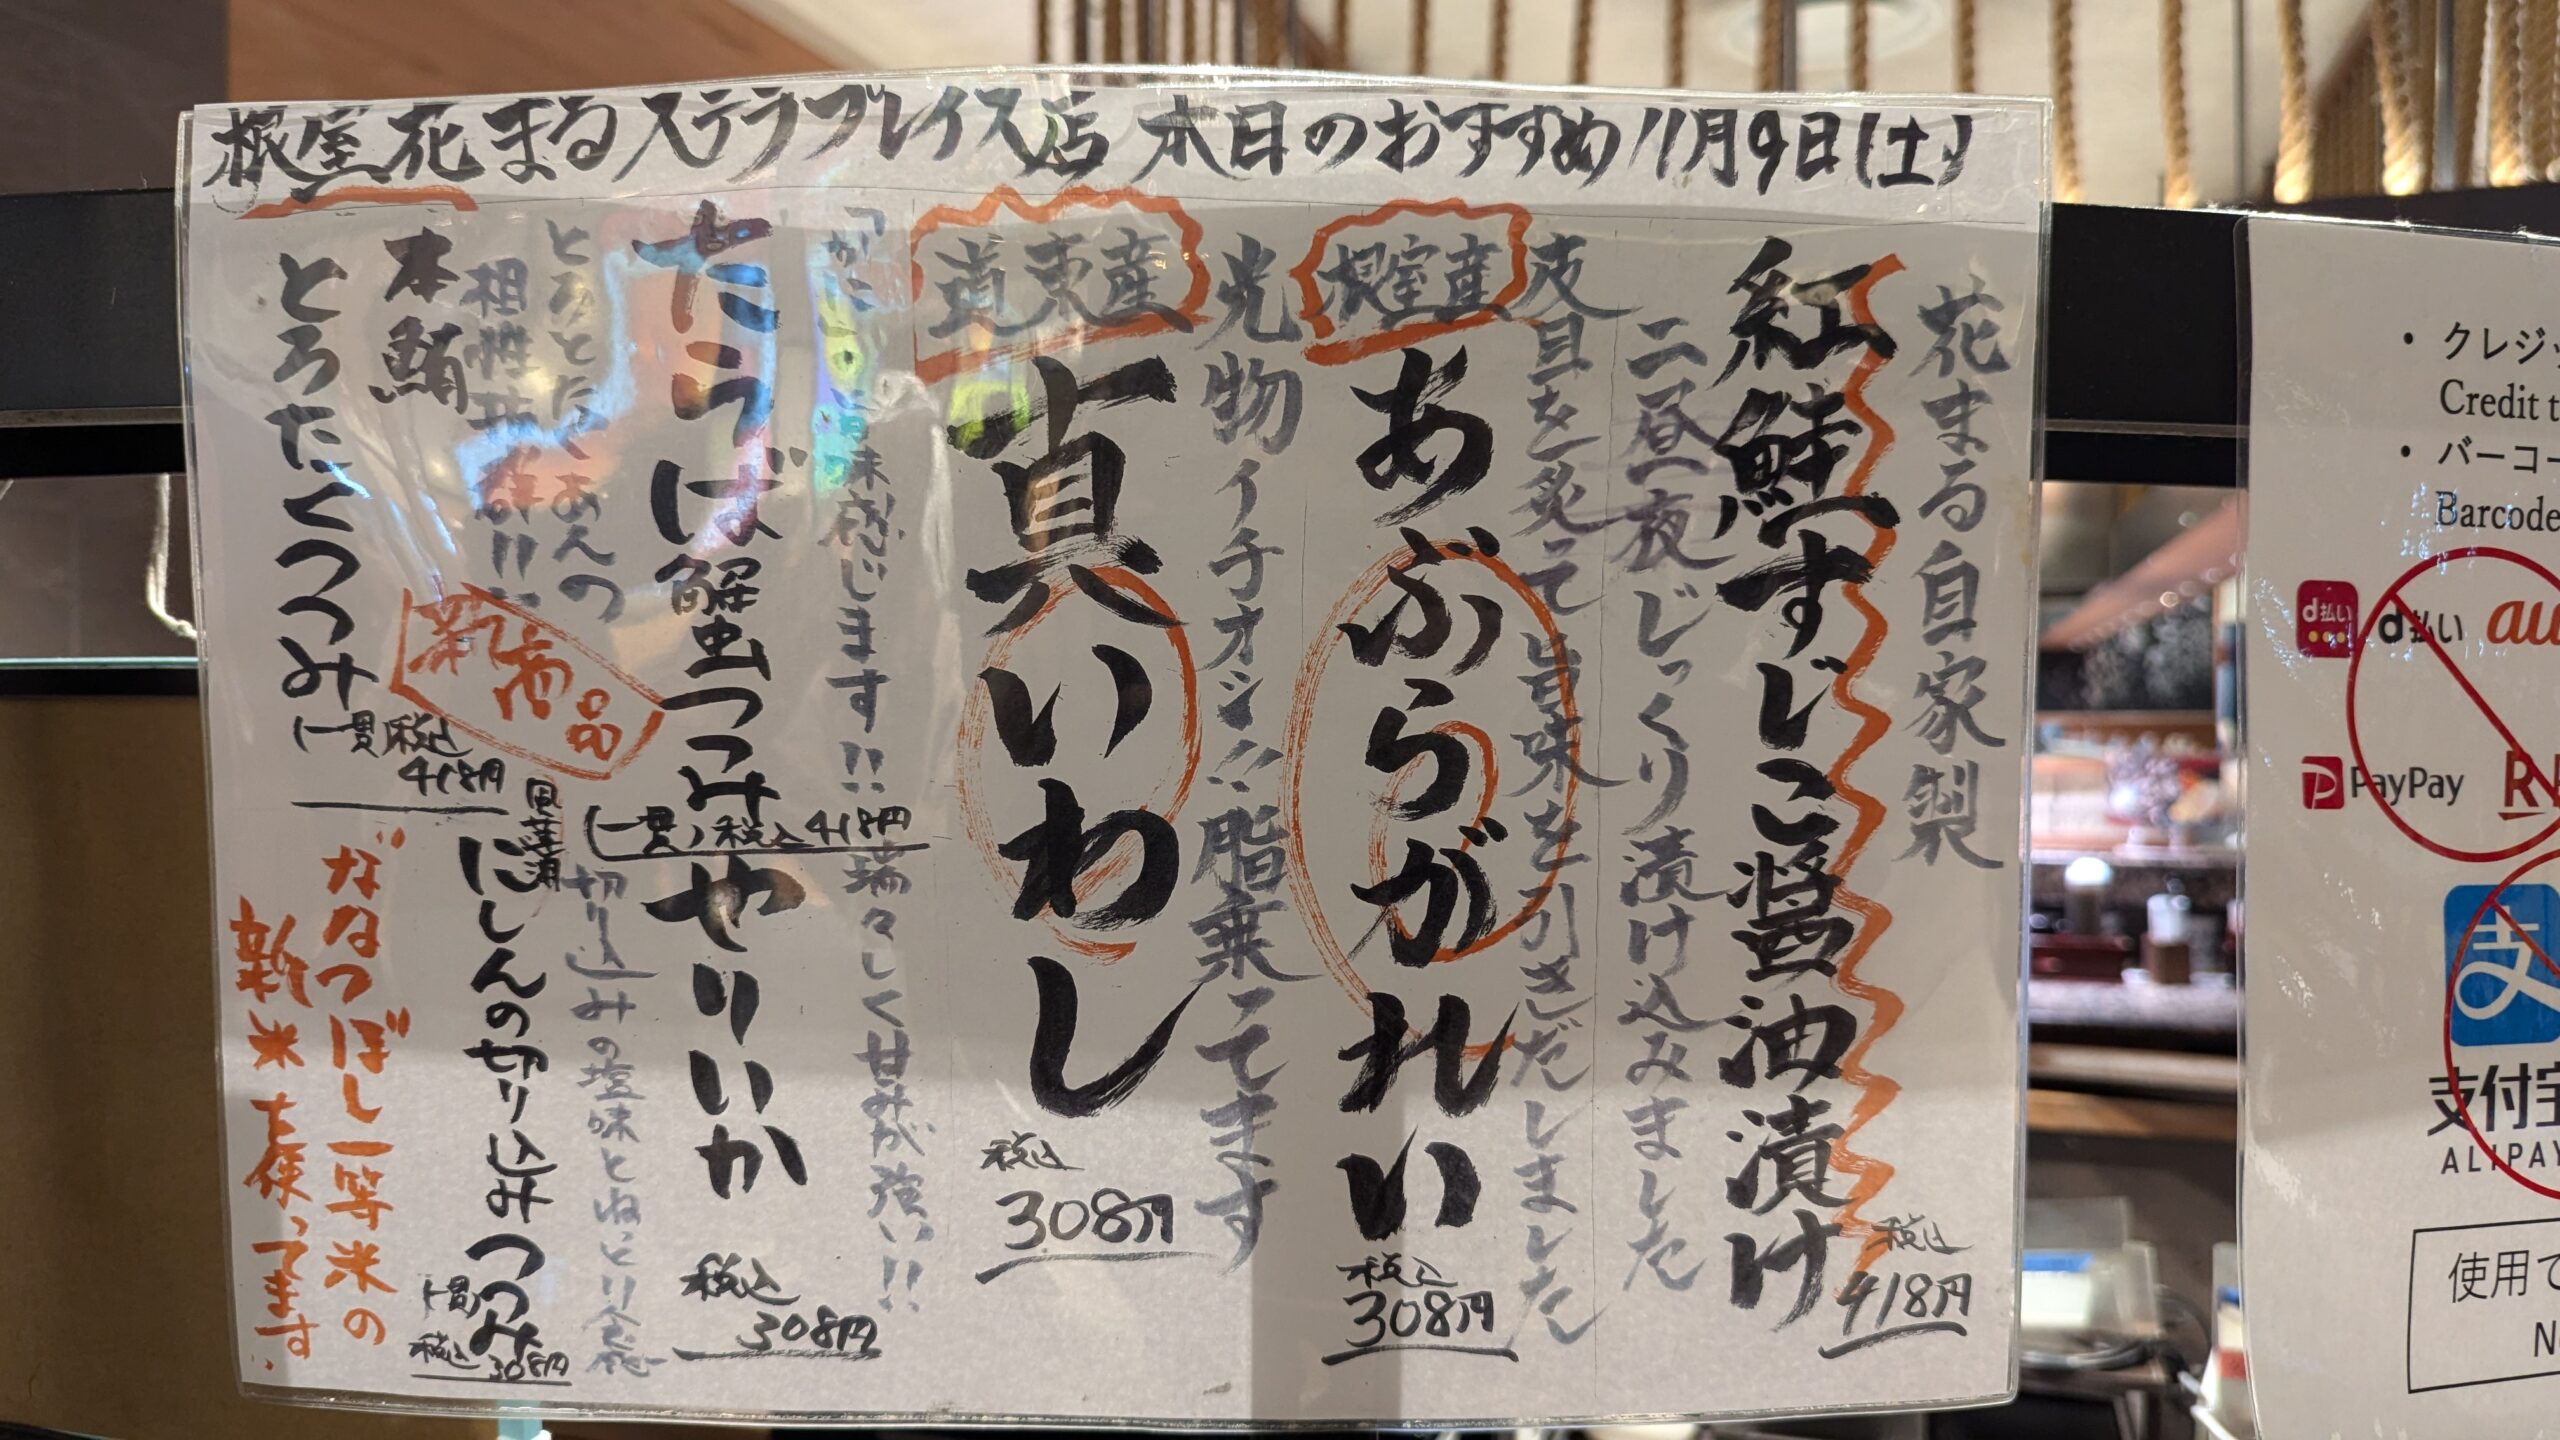 根室花まるステラプレイス店 本日のおすすめ 11月9日(土)
花まる自家製
紅鮭すじこ醤油漬け
税込
418円
二昼夜じっくり漬け込みました
皮目を炙って旨味を引きだしました
根室産
あぶらがれい
税込
308円
光物イチオシ!!脂乗ってます
道東産
真いわし
税込
308円
味わい感じます!!
たらば蟹つつみ
(一貫)税込418円
瑞々しく甘みが強い!!
やりいか
税込
308円
相性抜群!!
新商品
本鮪
とろたくつつみ
(一貫)税込
418円
切り込みの塩味とねっとり食感
にしんの切り込みつつみ
(一貫)
税込308円
ななつぼし一等米の
新米を使ってます
Credit
Barcode
d払い
d払い
au
PayPay
支
ALIPAY
使用